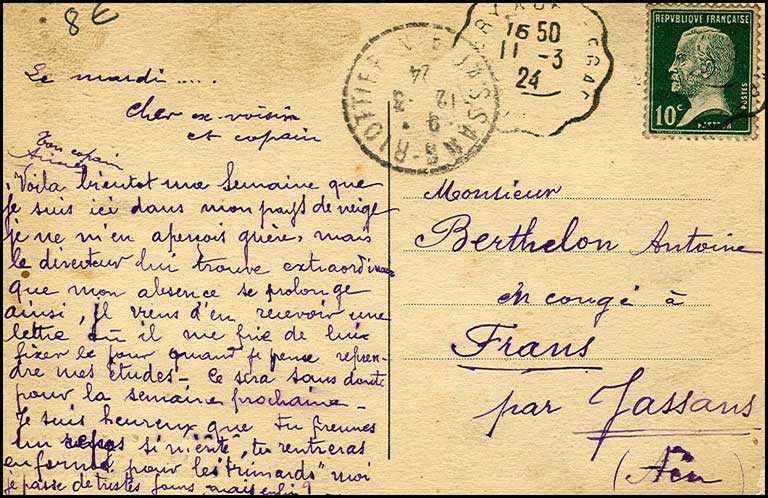 8€
Le mardi.....
cher ex-voisin
et copain
Ton copain
Aimé
Voilà bientôt une semaine que
je suis ici dans mon pays de neige
je ne m'en aperçois guère, mais
le directeur lui trouve extraordinaire
que mon absence se prolonge
ainsi, Il viens d'en recevoir une
lettre où il me prie de lui
fixer le jour quant je pense repren-
dre mes études-. Ce sera sans doute
pour la semaine prochaine-
Je suis heureux que tu prennes
un repos si mérité, tu rentreras
en forme pour les "trimards" moi
je passe de tristes jours, mais enfin
JASSANS-RIOTTIER
9
12 -3
24
16 50
11 -3
24
REPVBLIQUE FRANÇAISE
POSTES
10c
PASTEVR
Monsieur
Berthelon Antoine
en congé à
Frans
par Jassans
(Ain)